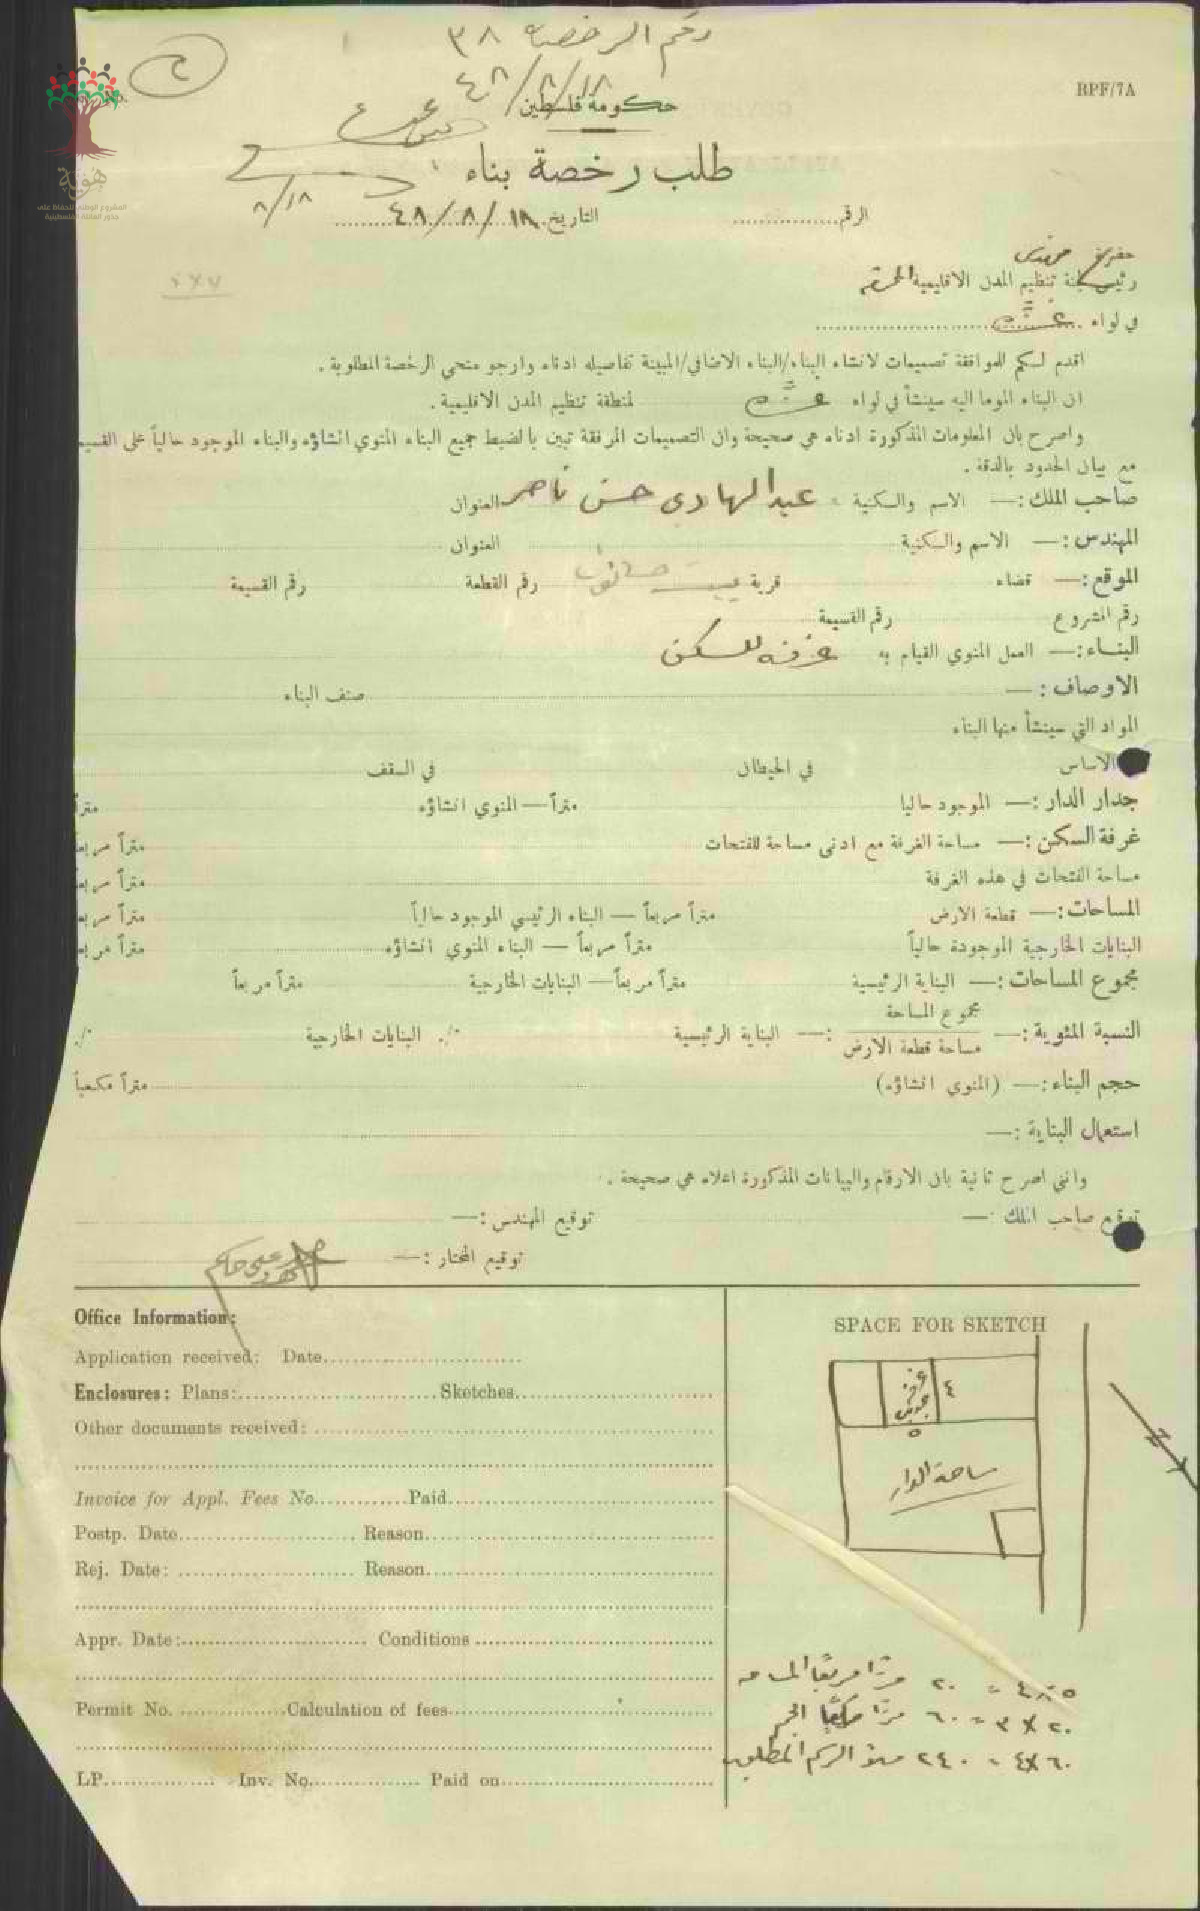 رقم الرخصة ٣٨
٤٨/٨/١٨
RPF/7A
No.
حكومة فلسطين
طلب رخصة بناء
٨/١٨
هوية
المشروع الوطني للحفاظ على
جذور العائلة الفلسطينية
الرقم............ التاريخ ٤٨/٨/١٨
حضرة مهندس
رئيس لجنة تنظيم المدن الاقليمية
في لواء غزة
اقدم لكم للموافقة تصميمات لانشاء البناء/البناء الاضافي/المبينة تفاصيله ادناه وارجو منحي الرخصة المطلوبة .
ان البناء الموما اليه سينشأ في لواء غزة لمنطقة تنظيم المدن الاقليمية .
واصرح بان المعلومات المذكورة ادناه هي صحيحة وان التصميمات المرفقة تبين بالضبط جميع البناء المنوي انشاؤه والبناء الموجود حالياً على القسيمة
مع بيان الحدود بالدقة .
صاحب الملك :— الاسم والكنية عبد الهادي حسن ناصر العنوان
المهندس :— الاسم والكنية العنوان
الموقع :— قضاء قرية بيت حانون رقم القطعة رقم القسيمة
رقم المشروع رقم القسيمة
البناء :— العمل المنوي القيام به غرفة للسكن
الاوصاف :— صنف البناء
المواد التي سينشأ منها البناء
الاساس في الحيطان في السقف
جدار الدار :— الموجود حاليا متراً — المنوي انشاؤه متراً
غرفة السكن :— مساحة الغرفة مع ادنى مساحة للفتحات متراً مربعاً
مساحة الفتحات في هذه الغرفة متراً مربعاً
المساحات :— قطعة الارض متراً مربعاً — البناء الرئيسي الموجود حالياً متراً مربعاً
البنايات الخارجية الموجودة حالياً متراً مربعاً — البناء المنوي انشاؤه متراً مربعاً
مجموع المساحات :— البناية الرئيسية متراً مربعاً — البنايات الخارجية متراً مربعاً
النسبة المئوية :— مجموع المساحة
مساحة قطعة الارض :— البناية الرئيسية ./. البنايات الخارجية ./.
حجم البناء :— (المنوي انشاؤه) متراً مكعباً
استعمال البناية :—
وانني اصرح ثانية بان الارقام والبيانات المذكورة اعلاه هي صحيحة .
توقيع صاحب الملك :— توقيع المهندس :—
توقيع المختار :—
Office Information:
Application received: Date..........
Enclosures: Plans:.......... Sketches..........
Other documents received: ..........
Invoice for Appl. Fees No. .......... Paid..........
Postp. Date.......... Reason..........
Rej. Date: .......... Reason..........
Appr. Date:.......... Conditions ..........
Permit No. .......... Calculation of fees..........
LP.......... Inv. No. .......... Paid on..........
SPACE FOR SKETCH
٤
٥
ساحة الدار
٥×٤ = ٢٠ متراً مربعاً المساحه
٢٠×٣ = ٦٠ متراً مكعباً الحجم
٦٠×٤ = ٢٤٠ الرسم المطلوب